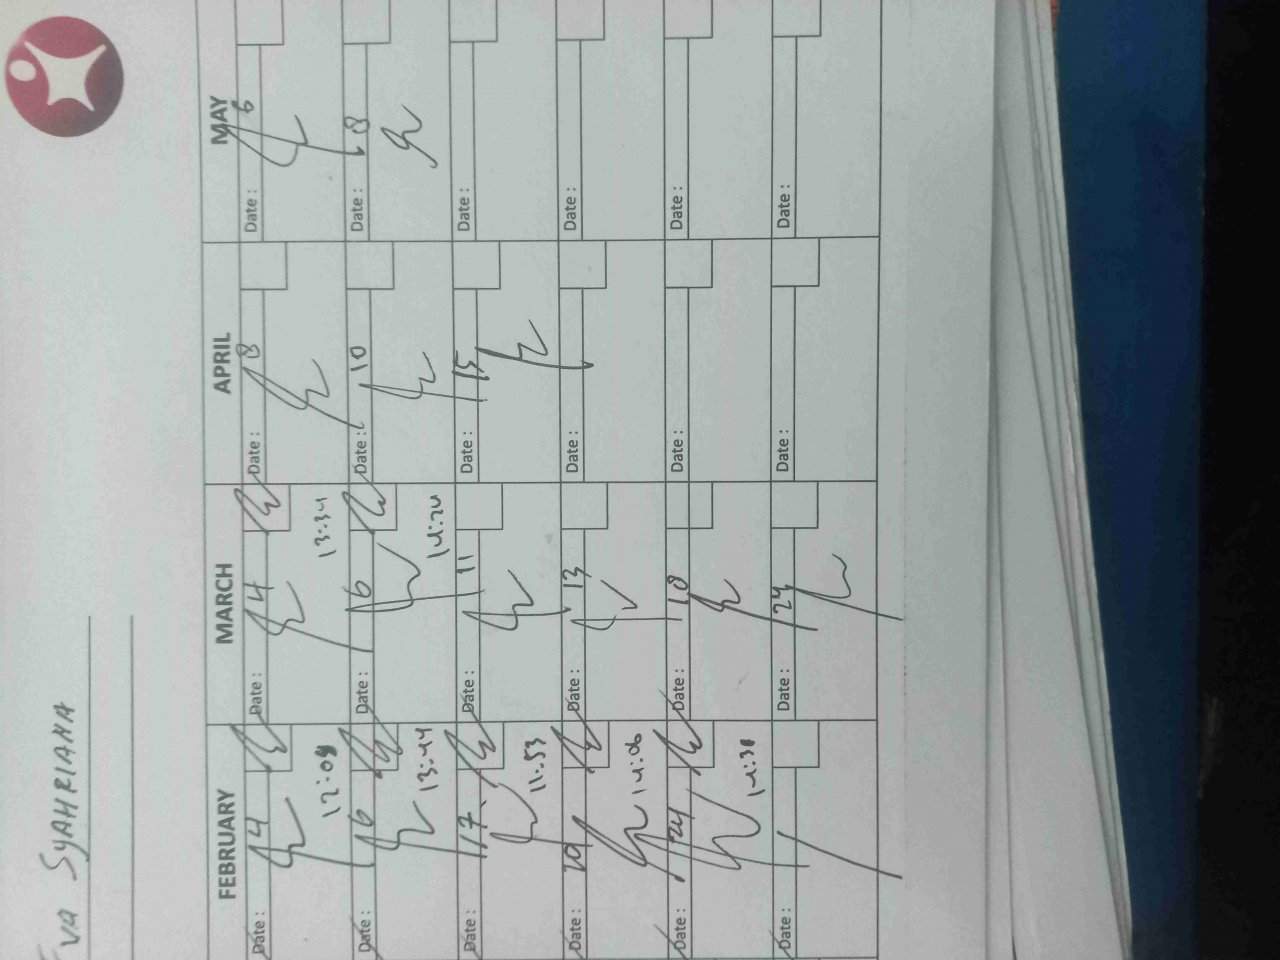 Eva SYAHRIANA
FEBRUARY MARCH APRIL MAY
Date: 4 Date: 4 Date: 8 Date: 6
12:09 13:34
Date: 6 Date: 6 Date: 10 Date: 8
13:44 14:24
Date: 17 Date: 11 Date: 15 Date:
11:53
Date: Date: 13 Date: Date:
14:06
Date: 24 Date: 18 Date: Date:
14:38
Date: Date: 24 Date: Date: